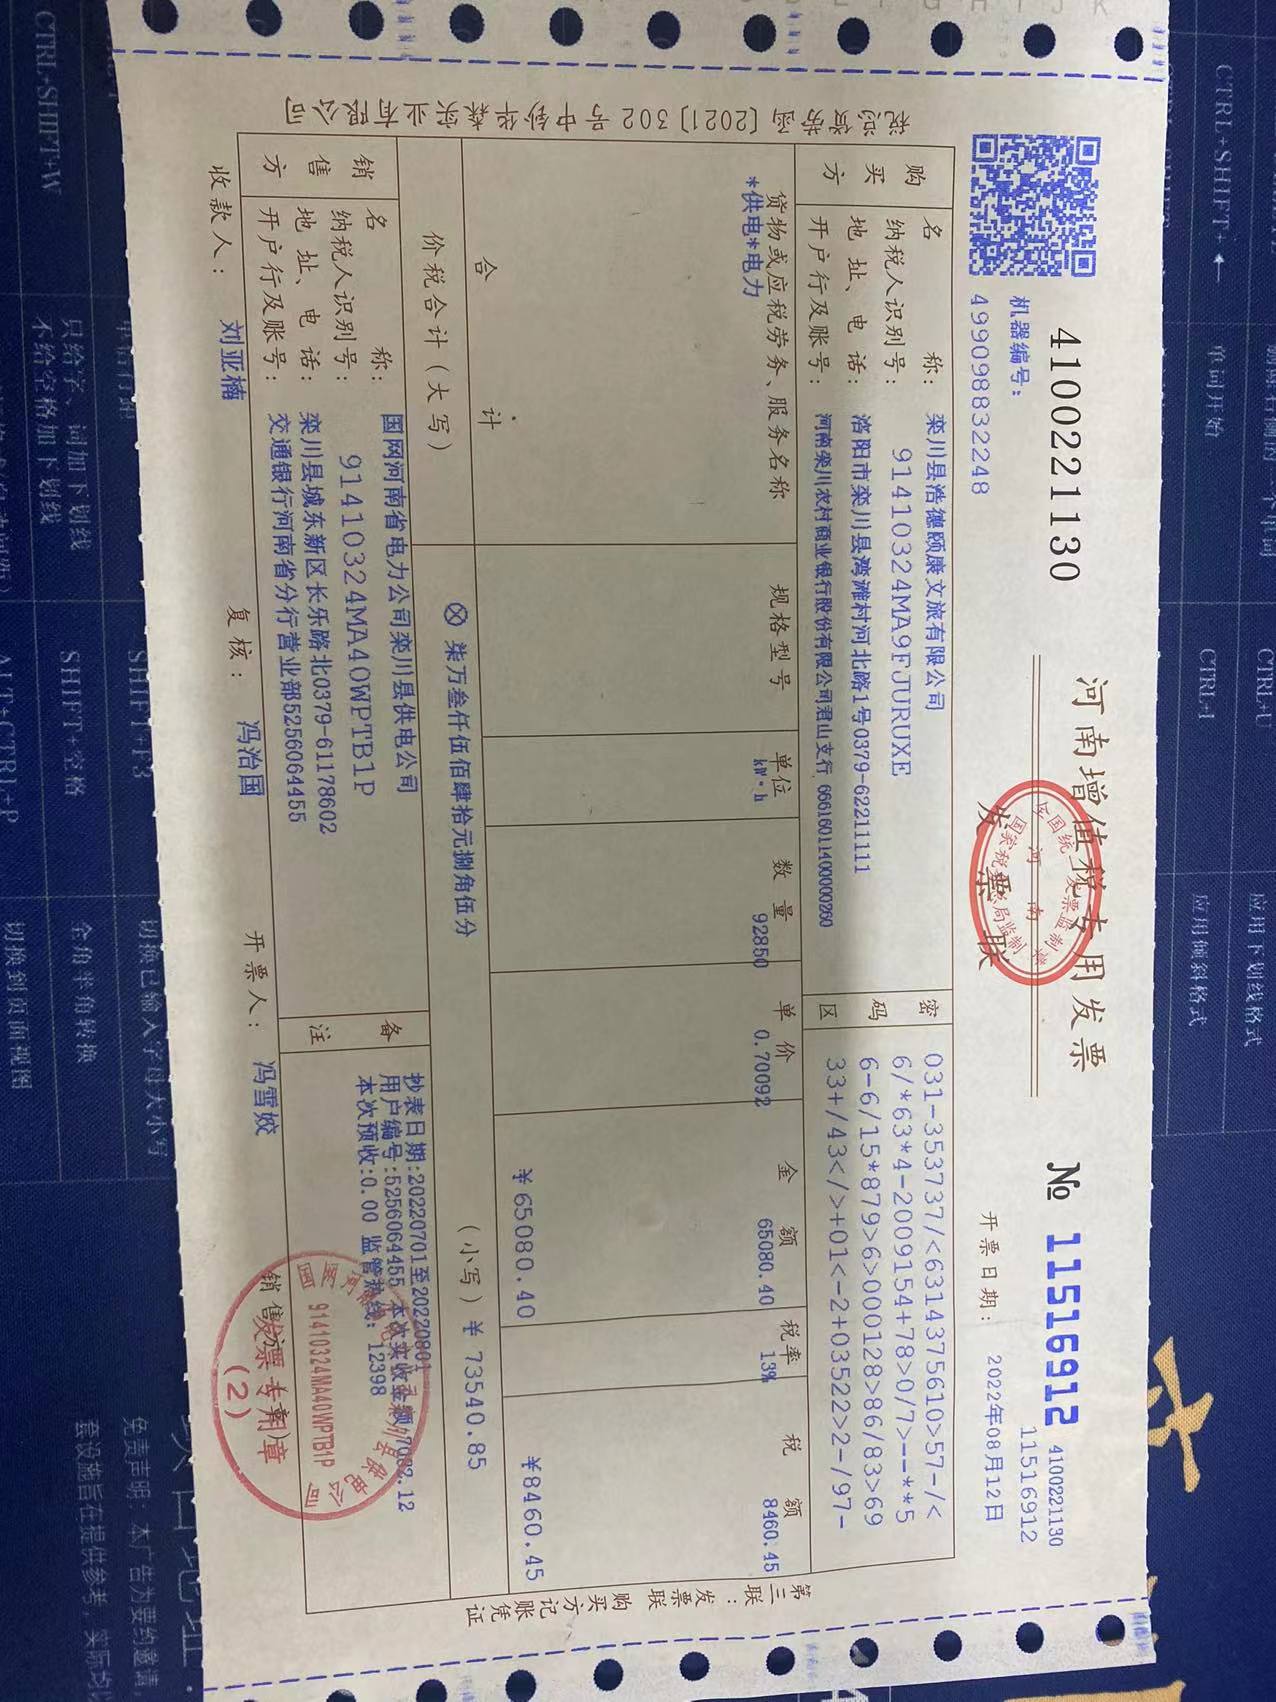 4100221130
河南增值税专用发票
发票联
№ 11516912
4100221130
11516912
机器编号:
499098832248
开票日期: 2022年08月12日
税总货劳函[2021]302号中钞华森实业有限公司
购买方
名称: 栾川县浩德颐康文旅有限公司
纳税人识别号: 91410324MA9FJURUXE
地址、电话: 洛阳市栾川县湾滩村河北路1号0379-62211111
开户行及账号: 河南栾川农村商业银行股份有限公司君山支行 66616011400000260
密码区
031-353737/<6314375610>57-/<
6/*63*4-2009154+78>0/7>--**5
6-6/15*879>6>000128>86/83>69
33+/43</>+01<-2+03522>2-/97-
货物或应税劳务、服务名称 规格型号 单位 数量 单价 金额 税率 税额
*供电*电力 kW·h 92850 0.70092 65080.40 13% 8460.45
合计 ¥65080.40 ¥8460.45
价税合计(大写) ⊗柒万叁仟伍佰肆拾元捌角伍分 (小写)¥73540.85
销售方
名称: 国网河南省电力公司栾川县供电公司
纳税人识别号: 91410324MA40WPTB1P
地址、电话: 栾川县城东新区长乐路北0379-61178602
开户行及账号: 交通银行河南省分行营业部5256064455
备注
抄表日期:20220701至20220801
用户编号:5256064455 本次实收金额
本次预收:0.00 监管热线: 12398
收款人: 刘亚楠 复核: 冯治国 开票人: 冯雪姣 销售方:(章)
91410324MA40WPTB1P
发票专用章
(2)
第三联:发票联 购买方记账凭证
CTRL-SHIFT+W
CTRL+SHIFT+←
单词开始
只给字、词加下划线
不给空格加下划线
SHIFT-空格
全角半角转换
CTRL+U
应用下划线格式
CTRL-I
应用倾斜格式
ALT+CTRL+P
切换到页面视图
切换已输入字母大小写